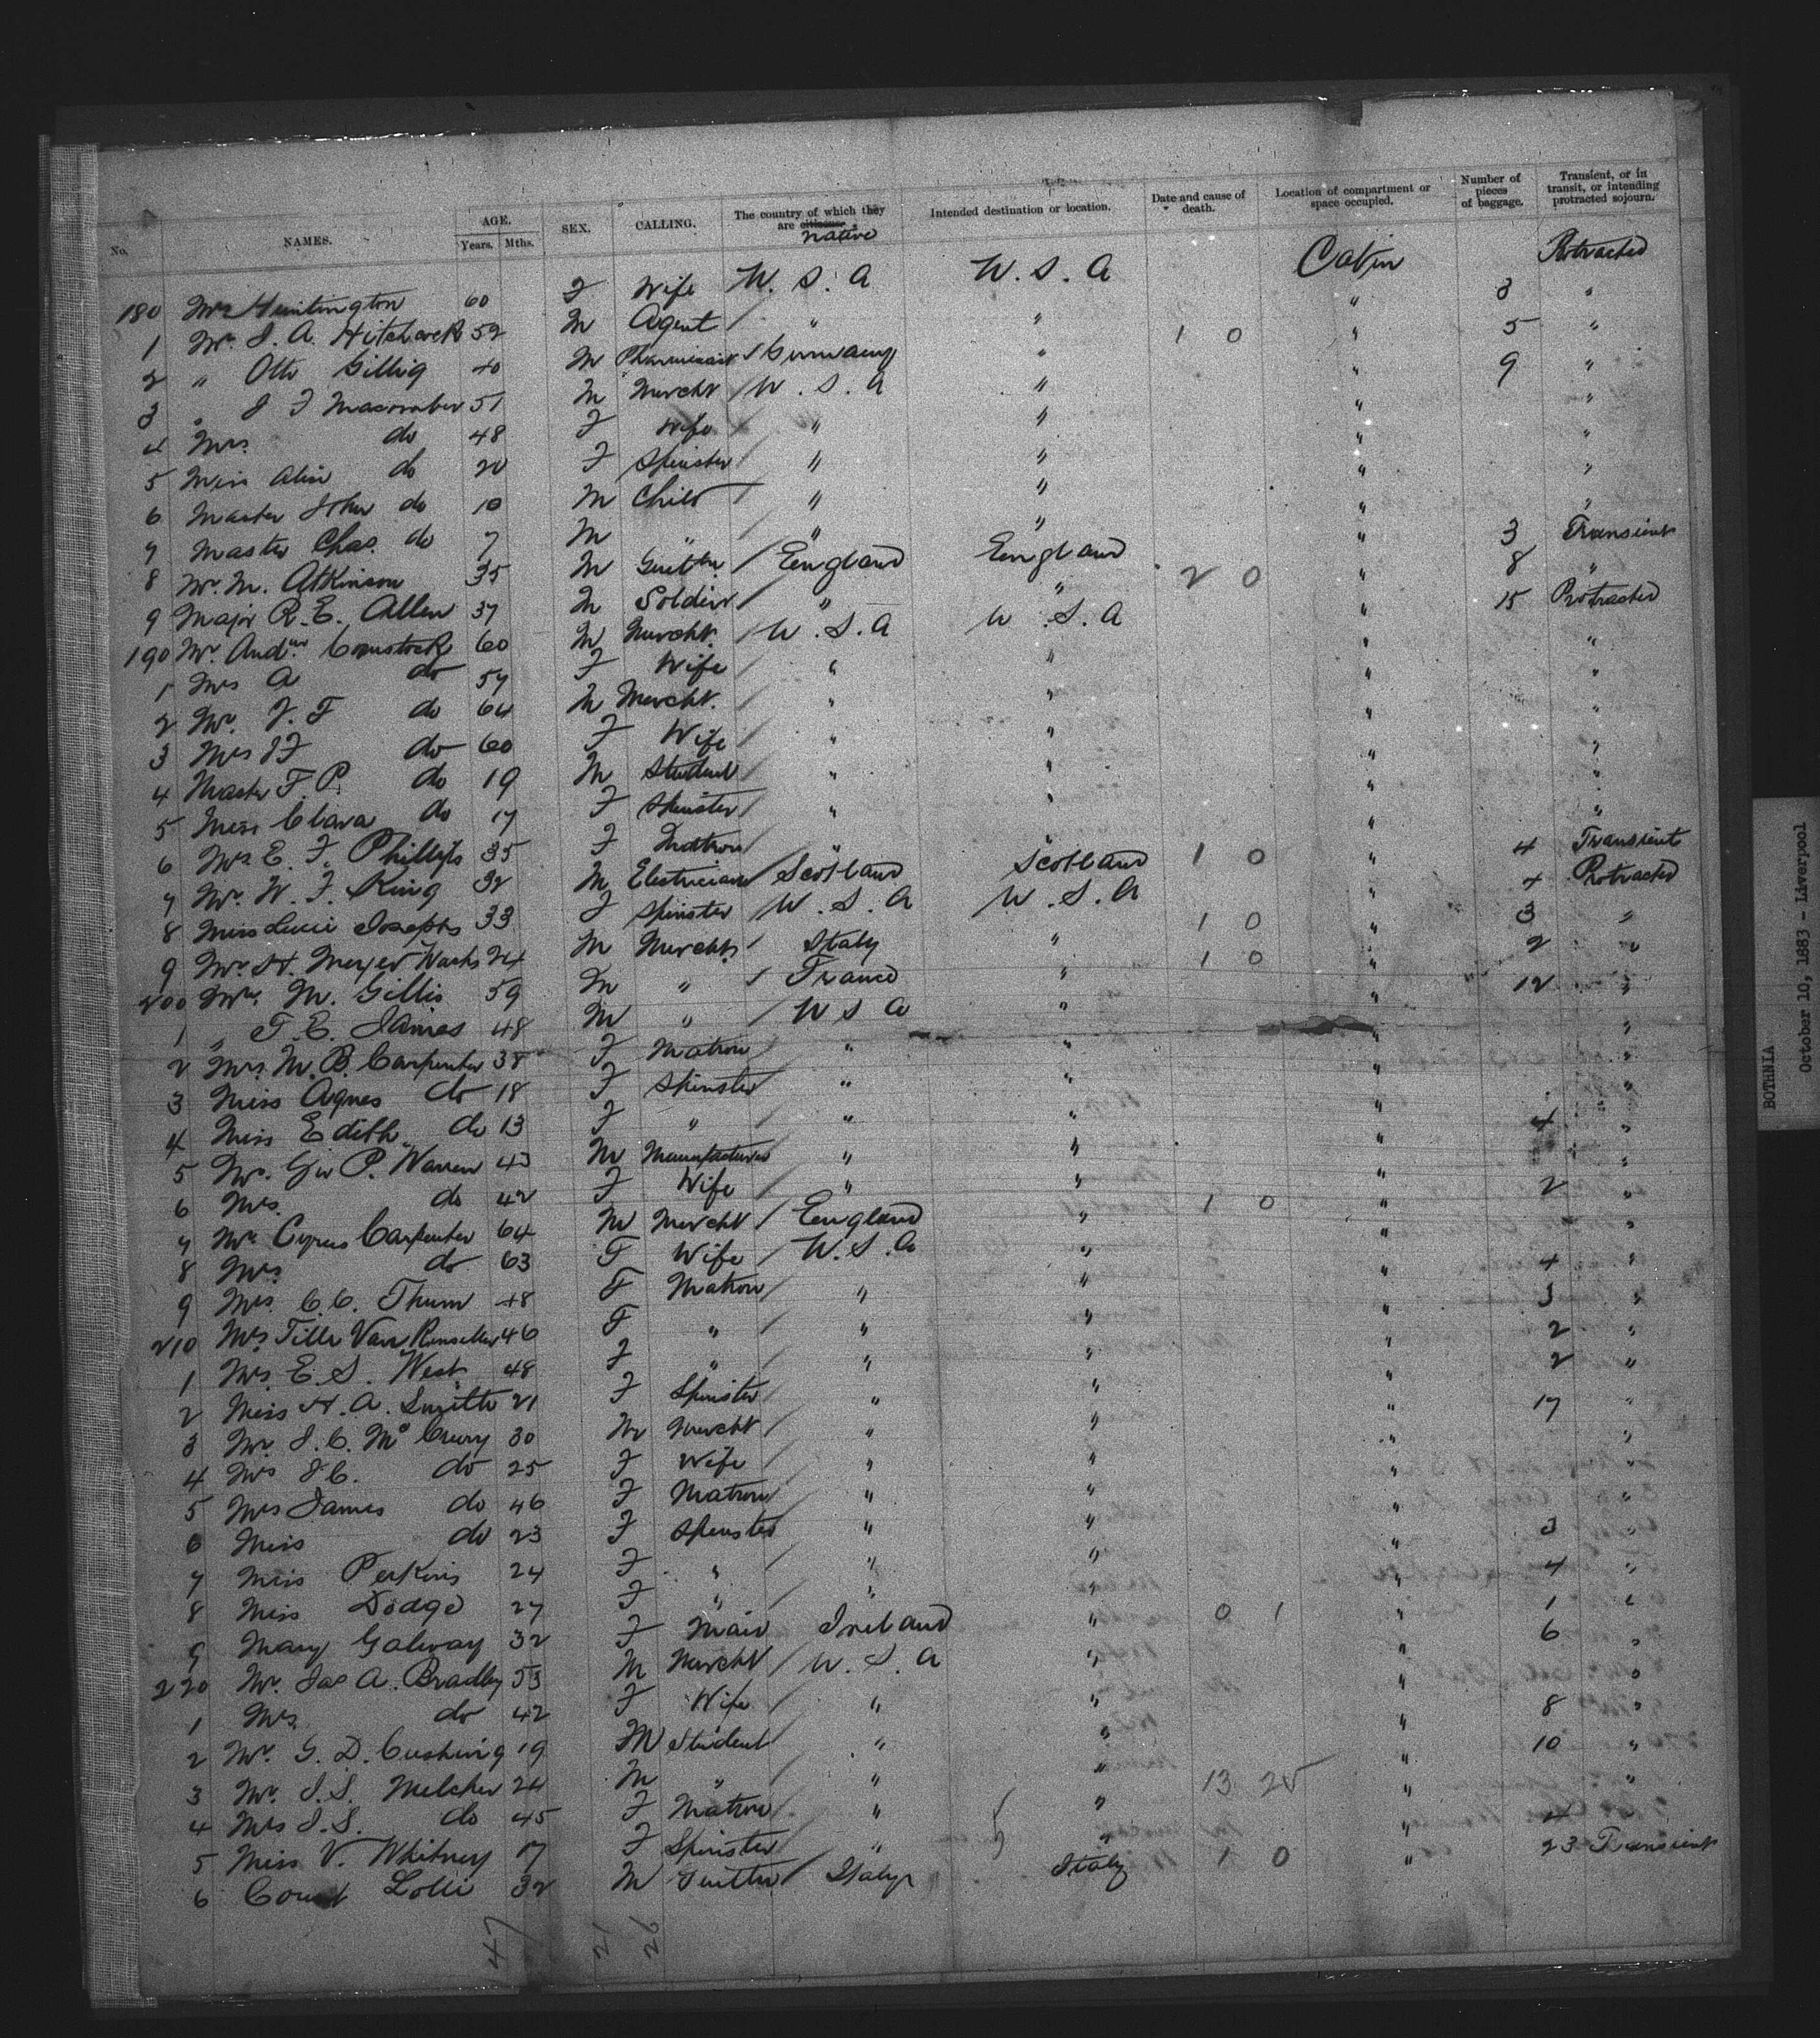 No. NAMES. AGE. Years. Mths. SEX. CALLING. The country of which they are citizens. native Intended destination or location. Date and cause of death. Location of compartment or space occupied. Number of pieces of baggage. Transient, or in transit, or intending protracted sojourn.
180 Mrs Huntington 60 F Wife U. S. A U. S. A Cabin Protracted
1 Mr. J. A. Hitchcock 52 M Agent / " " 1 0 " 3 "
2 " Otto Gillig 40 M Pharmicist / Germany " " 5 "
3 " J F Macomber 51 M Mercht / U. S. A " " 9 "
4 Mrs. do 48 F Wife / " " " "
5 Miss Alice do 20 F Spinster / " " " "
6 Master John do 10 M Child / " " " "
7 Master Chas. do 7 M " " " " "
8 Mr. M. Atkinson 35 M Gentln / England England " 3 Transient
9 Major R. E. Allen 37 M Soldier / " " 2 0 " 8 "
190 Mr. Andw Comstock 60 M Mercht. / U. S. A U. S. A " 15 Protracted
1 Mrs A do 57 F Wife / " " " "
2 Mr. J. F do 64 M Mercht. / " " " "
3 Mrs J F do 60 F Wife / " " " "
4 Master F. P. do 19 M Student / " " " "
5 Miss Clara do 17 F Spinster / " " " "
6 Mrs E. F. Phillips 35 F Matron / " " "
7 Mr. W. F. King 32 M Electrician / Scotland Scotland 1 0 " 4 Transient
8 Miss Lucie Josephs 33 F Spinster / U. S. A U. S. A " 4 Protracted
9 Mr. H. Meyer Wachs 24 M Mercht / Italy " 1 0 " 3 "
200 Mr. M. Gillis 59 M " / France " 1 0 " 2 "
1 " T. E. James 48 M " / U S A " " 12 "
2 Mrs. M. B. Carpenter 38 F Matron / " " " "
3 Miss Agnes do 18 F Spinster / " " " "
4 Miss Edith do 13 F " / " " " "
5 Mr. Geo P. Warren 43 M Manufacturer " " " 4 "
6 Mrs. do 42 F Wife / " " " "
7 Mr. Cyrus Carpenter 64 M Mercht / England " 1 0 " 2 "
8 Mrs. do 63 F Wife / U. S. A " " "
9 Mrs. C. C. Thum 48 F Matron / " " " 4 "
210 Mrs Tille Van Rensseller 46 F " / " " " 3 "
1 Mrs. E. S. West 48 F " / " " " 2 "
2 Miss H. A. Smith 21 F Spinster / " " " 2 "
3 Mr. J. C. McCreery 30 M Mercht / " " " 17 "
4 Mrs J C. do 25 F Wife / " " " "
5 Mrs James do 46 F Matron / " " " "
6 Miss do 23 F Spinster " " " "
7 Miss Perkins 24 F " / " " " 3 "
8 Miss Dodge 27 F " / " " " 4 "
9 Mary Galway 32 F Maid Ireland " 0 1 " 1 "
220 Mr. Jas A. Bradley 53 M Mercht / U. S. A " " 6 "
1 Mrs. do 42 F Wife / " " " "
2 Mr. G. D. Cushing 19 M Student / " " " 8 "
3 Mr. J. S. Melcher 24 M " / " " " 10 "
4 Mrs J. S. do 45 F Matron / " " 13 25 " "
5 Miss V. Whitney 17 F Spinster / " " " 4 "
6 Count Lolli 32 M Gentln / Italy Italy 1 0 " 23 Transient
47 21 26
BOTHNIA
October 10, 1883 - Liverpool